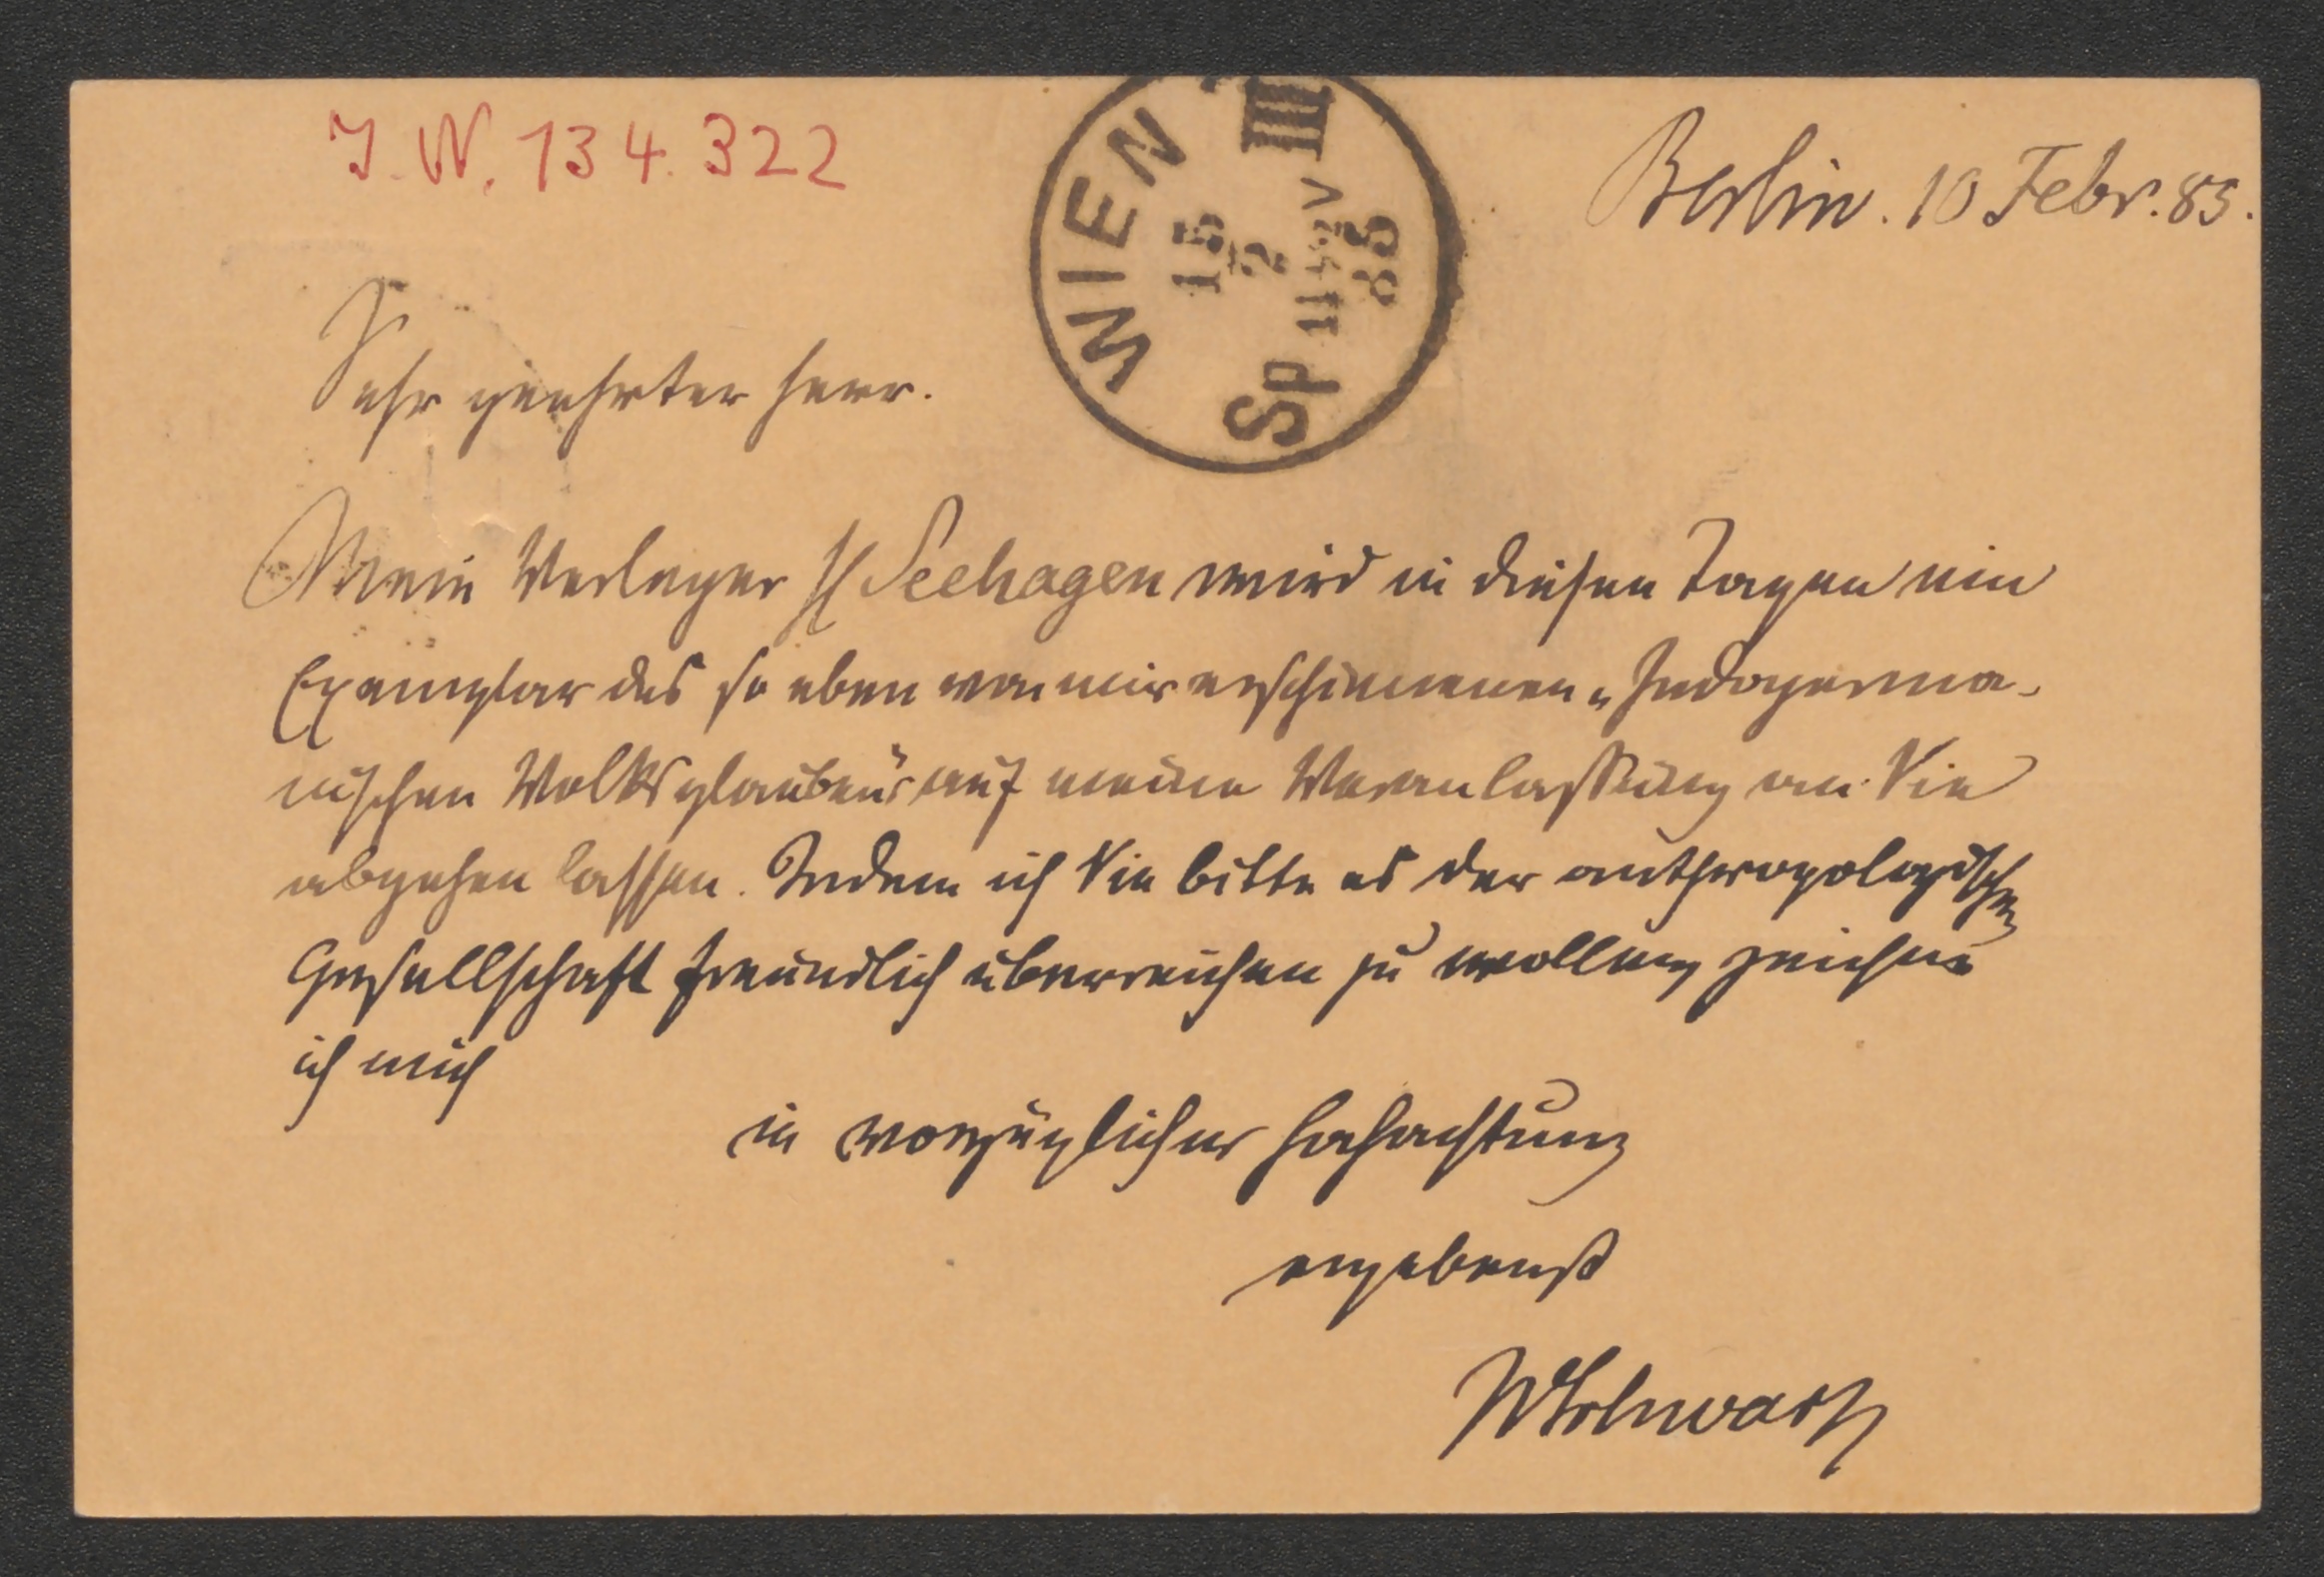 J.N. 134.322
WIEN III
15
2
11½ V
85
Sp
Berlin. 10 Febr. 85.
Sehr geehrter Herr.
Mein Verleger H Seehagen wird in diesen Tagen ein
Exemplar des so eben von mir erschienenen „Indogerma-
nischen Volksglauben" auf meine Veranlassung an Sie
abgehen lassen. Indem ich Sie bitte es der anthropologischen
Gesellschaft freundlich überreichen zu wollen, zeichne
ich mich
in vorzüglicher Hochachtung
ergebenst
WSchwartz